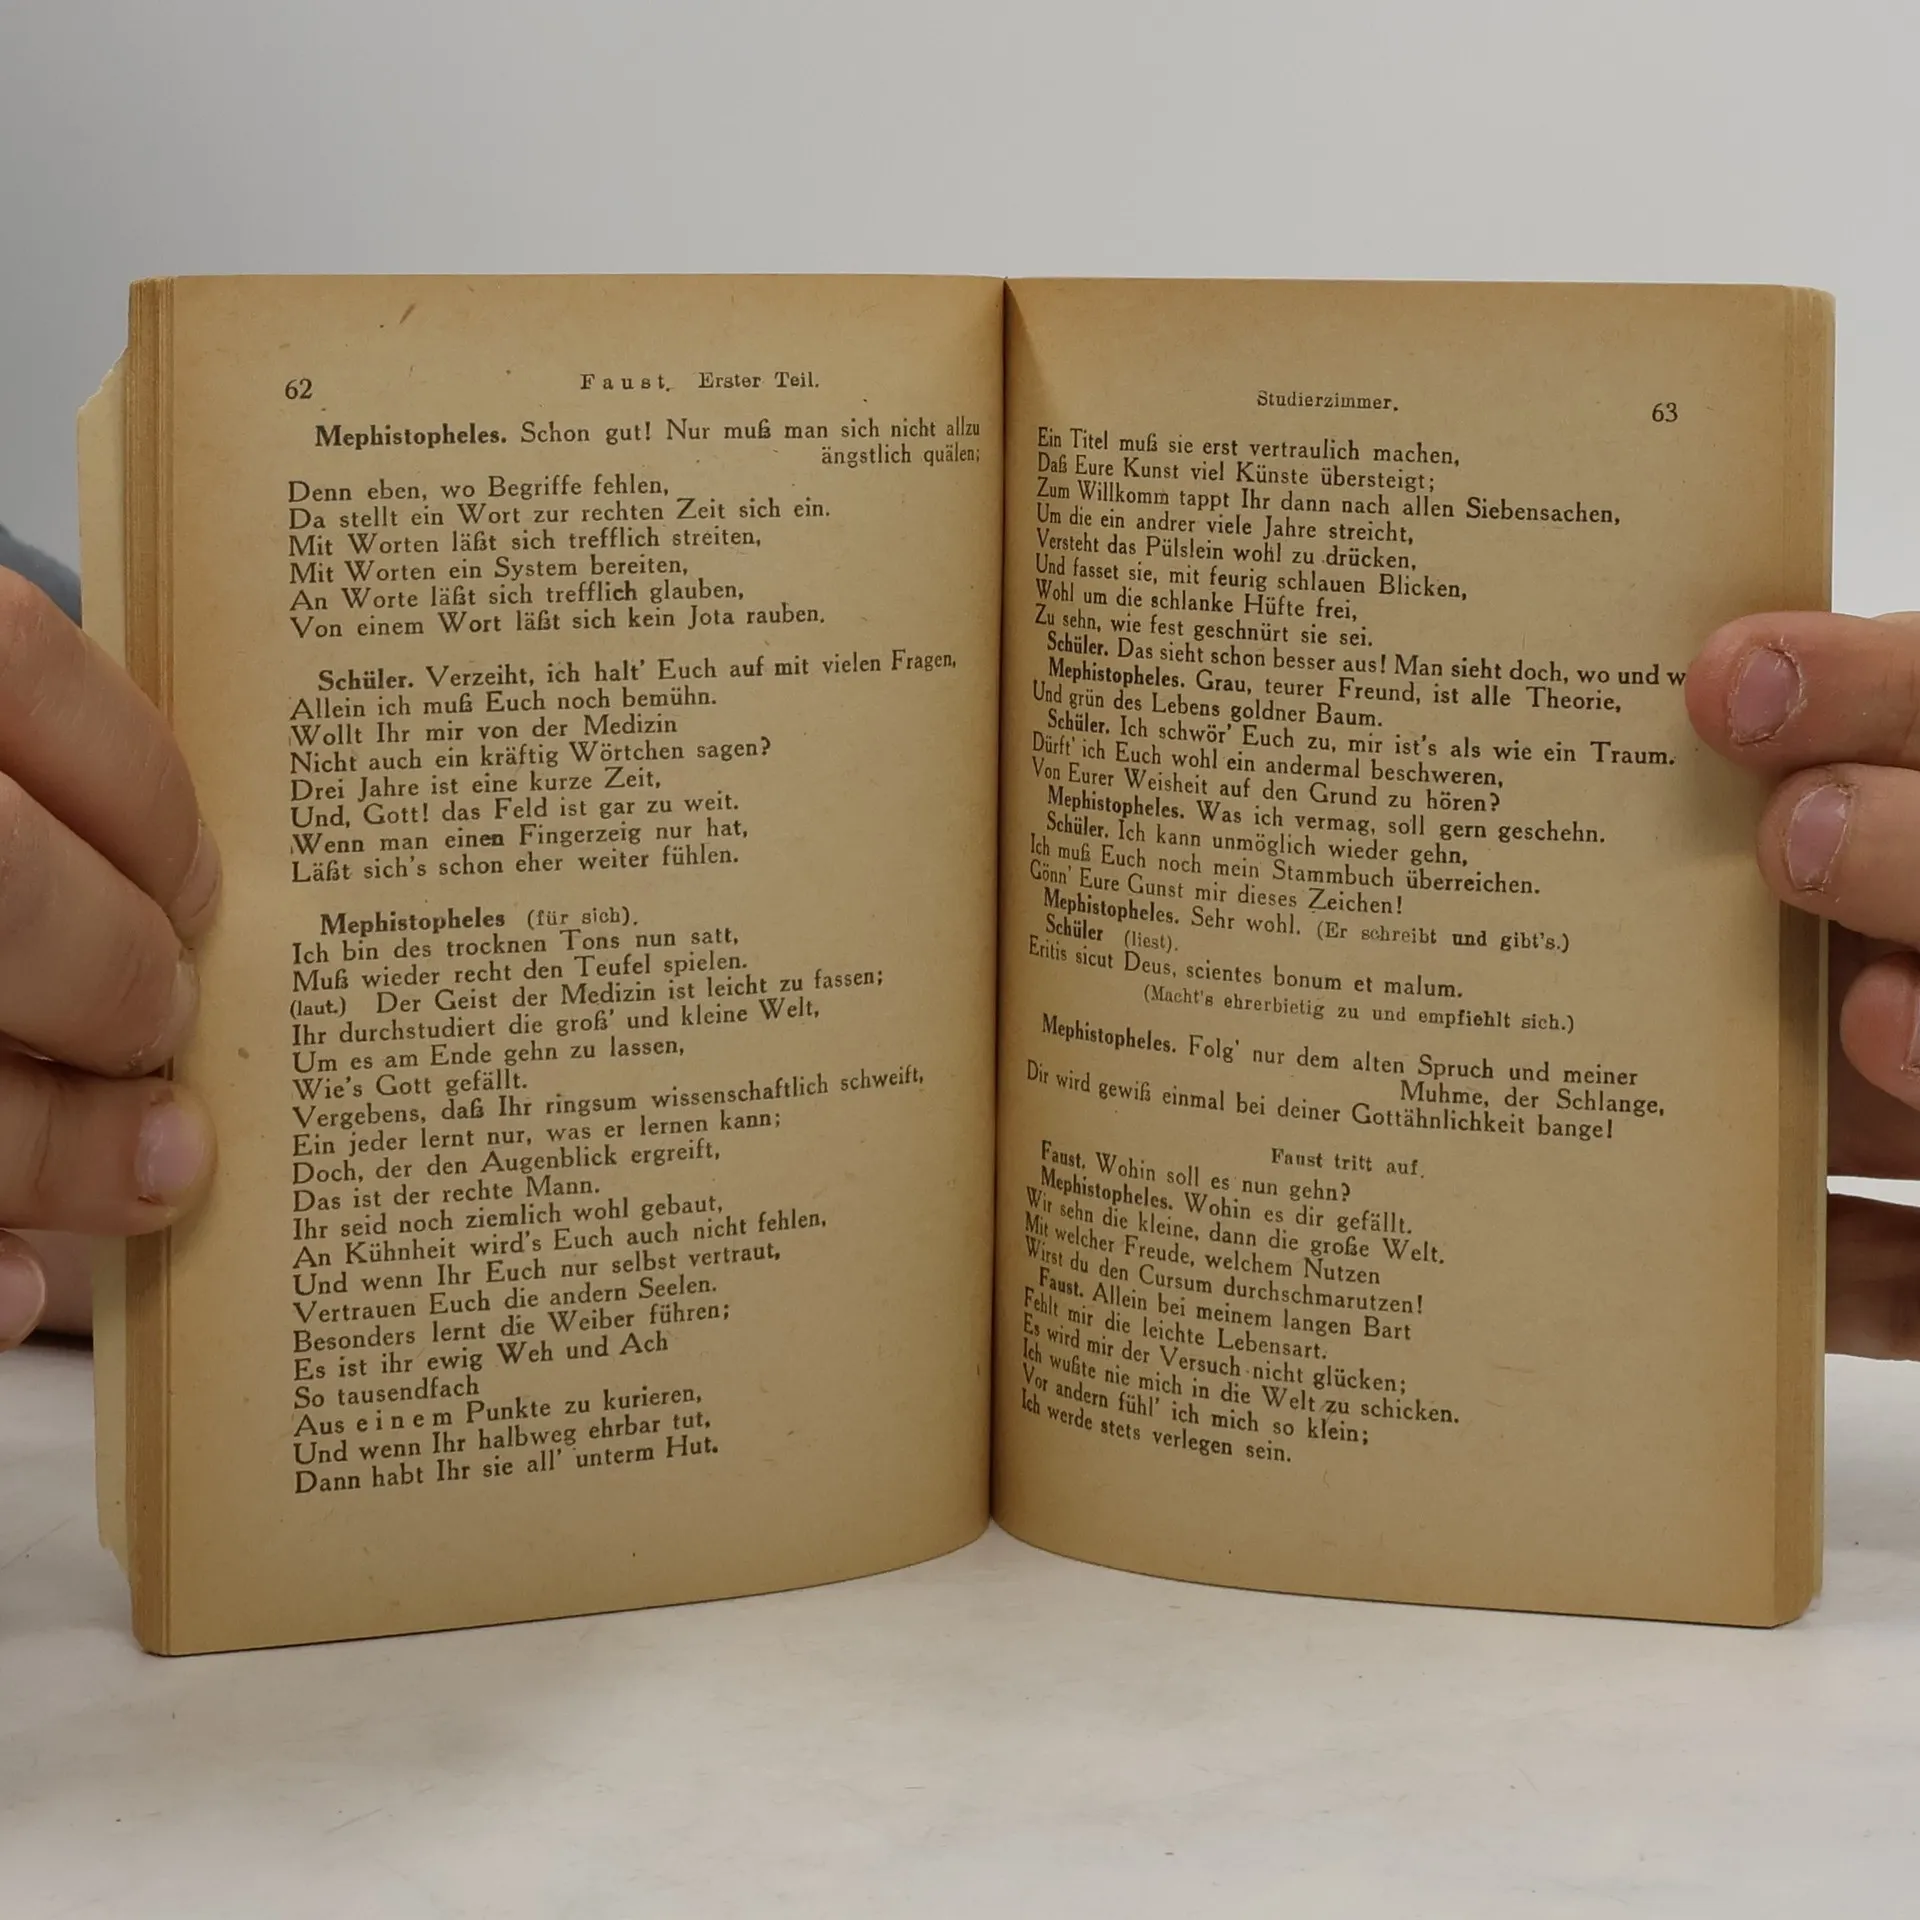 62
Faust. Erster Teil.
Mephistopheles. Schon gut! Nur muß man sich nicht allzu
ängstlich quälen;
Denn eben, wo Begriffe fehlen,
Da stellt ein Wort zur rechten Zeit sich ein.
Mit Worten läßt sich trefflich streiten,
Mit Worten ein System bereiten,
An Worte läßt sich trefflich glauben,
Von einem Wort läßt sich kein Jota rauben.
Schüler. Verzeiht, ich halt' Euch auf mit vielen Fragen,
Allein ich muß Euch noch bemühn.
Wollt Ihr mir von der Medizin
Nicht auch ein kräftig Wörtchen sagen?
Drei Jahre ist eine kurze Zeit,
Und, Gott! das Feld ist gar zu weit.
Wenn man einen Fingerzeig nur hat,
Läßt sich's schon eher weiter fühlen.
Mephistopheles (für sich).
Ich bin des trocknen Tons nun satt,
Muß wieder recht den Teufel spielen.
(laut.) Der Geist der Medizin ist leicht zu fassen;
Ihr durchstudiert die groß' und kleine Welt,
Um es am Ende gehn zu lassen,
Wie's Gott gefällt.
Vergebens, daß Ihr ringsum wissenschaftlich schweift,
Ein jeder lernt nur, was er lernen kann;
Doch, der den Augenblick ergreift,
Das ist der rechte Mann.
Ihr seid noch ziemlich wohl gebaut,
An Kühnheit wird's Euch auch nicht fehlen,
Und wenn Ihr Euch nur selbst vertraut,
Vertrauen Euch die andern Seelen.
Besonders lernt die Weiber führen;
Es ist ihr ewig Weh und Ach
So tausendfach
Aus einem Punkte zu kurieren,
Und wenn Ihr halbweg ehrbar tut,
Dann habt Ihr sie all' unterm Hut.
Studierzimmer.
63
Ein Titel muß sie erst vertraulich machen,
Daß Eure Kunst viel Künste übersteigt;
Zum Willkomm tappt Ihr dann nach allen Siebensachen,
Um die ein andrer viele Jahre streicht,
Versteht das Pülslein wohl zu drücken,
Und fasset sie, mit feurig schlauen Blicken,
Wohl um die schlanke Hüfte frei,
Zu sehn, wie fest geschnürt sie sei.
Schüler. Das sieht schon besser aus! Man sieht doch, wo und w
Mephistopheles. Grau, teurer Freund, ist alle Theorie,
Und grün des Lebens goldner Baum.
Schüler. Ich schwör' Euch zu, mir ist's als wie ein Traum.
Dürft' ich Euch wohl ein andermal beschweren,
Von Eurer Weisheit auf den Grund zu hören?
Mephistopheles. Was ich vermag, soll gern geschehn.
Schüler. Ich kann unmöglich wieder gehn,
Ich muß Euch noch mein Stammbuch überreichen.
Gönn' Eure Gunst mir dieses Zeichen!
Mephistopheles. Sehr wohl. (Er schreibt und gibt's.)
Schüler (liest).
Eritis sicut Deus, scientes bonum et malum.
(Macht's ehrerbietig zu und empfiehlt sich.)
Mephistopheles. Folg' nur dem alten Spruch und meiner
Muhme, der Schlange,
Dir wird gewiß einmal bei deiner Gottähnlichkeit bange!
Faust tritt auf.
Faust. Wohin soll es nun gehn?
Mephistopheles. Wohin es dir gefällt.
Wir sehn die kleine, dann die große Welt.
Mit welcher Freude, welchem Nutzen
Wirst du den Cursum durchschmarutzen!
Faust. Allein bei meinem langen Bart
Fehlt mir die leichte Lebensart.
Es wird mir der Versuch nicht glücken;
Ich wußte nie mich in die Welt zu schicken.
Vor andern fühl' ich mich so klein;
Ich werde stets verlegen sein.